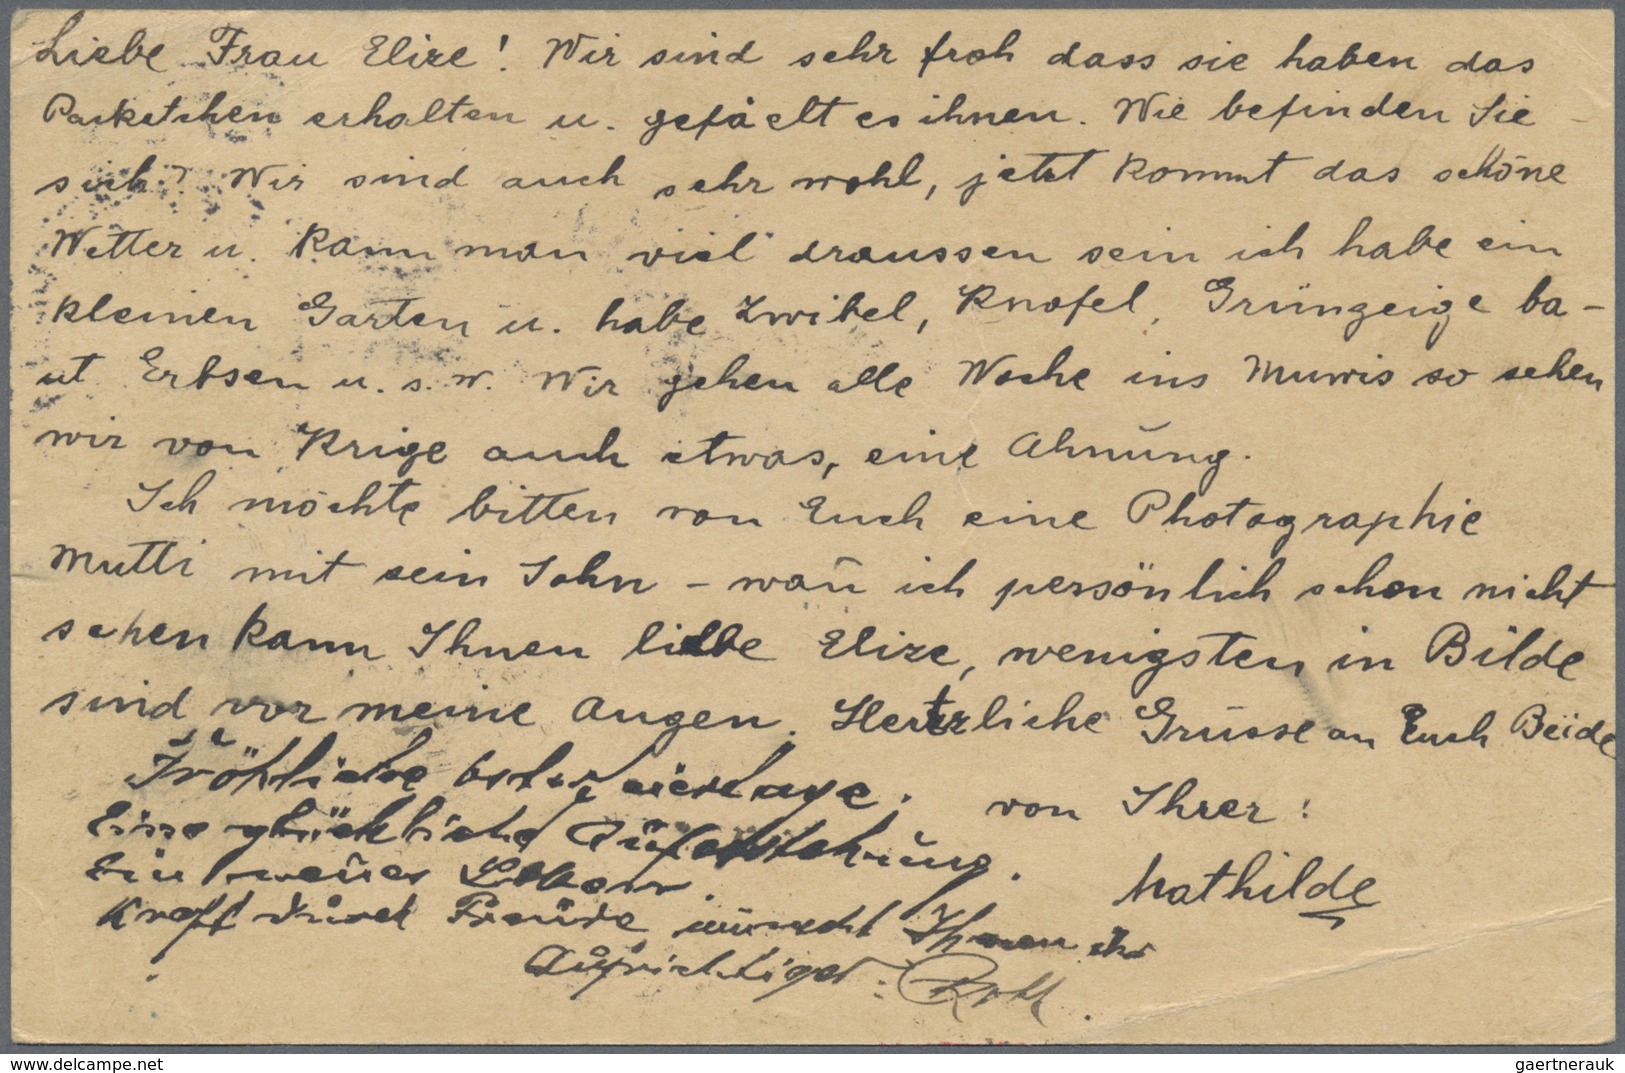 Liebe Frau Elize! Wir sind sehr froh dass sie haben das
Packetchen erhalten u. gefäelt es ihnen. Wie befinden Sie
sich? Wir sind auch sehr wohl, jetzt kommt das schöne
Wetter u. kann man viel draussen sein ich habe ein
kleinen Garten u. habe Zwibel, Knofel, Grünzeige ba-
ut Erbsen u. s. w. Wir gehen alle Woche ins Muwis so sehen
wir von Krige auch etwas, eine Ahnung.
Ich möchte bitten von Euch eine Photographie
Mutti mit sein Sohn – wañ ich persönlich schon nicht
sehen kann Ihnen liebe Elize, wenigsten in Bilde
sind vor meine Augen. Herzliche Grüsse an Euch Beide
von Ihrer:
Mathilde
Fröhliche Osterfeiertage.
Eine glückliche Auferstehung.
Ein neues Leben.
Kraft durch Freude wünscht Ihnen ihr
Aufrichtiger: Roth.
www.delcampe.net
gaertnerauk